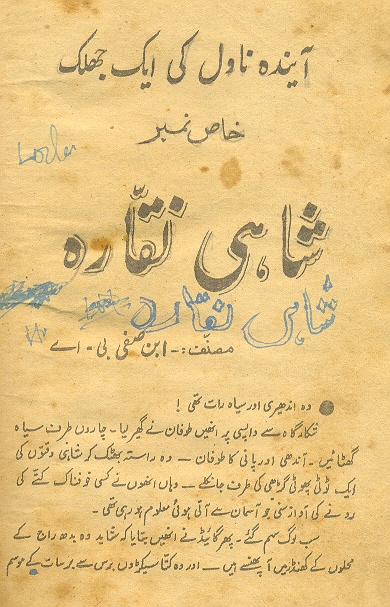 آیندہ ناول کی ایک جھلک
خاص نمبر
شاہی نقّارہ
شاہی نقارہ
مصنّف :- ابن صفی بی - اے
● وہ اندھیری اور سیاہ رات تھی !
شکار گاہ سے واپسی پر انھیں طوفان نے گھیر لیا - چاروں طرف سیاہ
گھٹائیں - آندھی اور پانی کا طوفان — وہ راستہ بھٹک کر شاہی وقتوں کی
ایک ٹوٹی پھوٹی گڑھی کی طرف جا نکلے — وہاں انھوں نے کسی خوفناک کتّے کی
رونے کی آواز سنی جو آسمان سے آتی ہوئی معلوم ہو رہی تھی -
سب لوگ سہم گئے - پھر گائیڈ نے انھیں بتایا کہ شاید وہ بدھ راج کے
محلوں کے کھنڈر میں آ پھنسے ہیں - اور وہ کتّا سیکڑوں برس سے برسات کے موسم